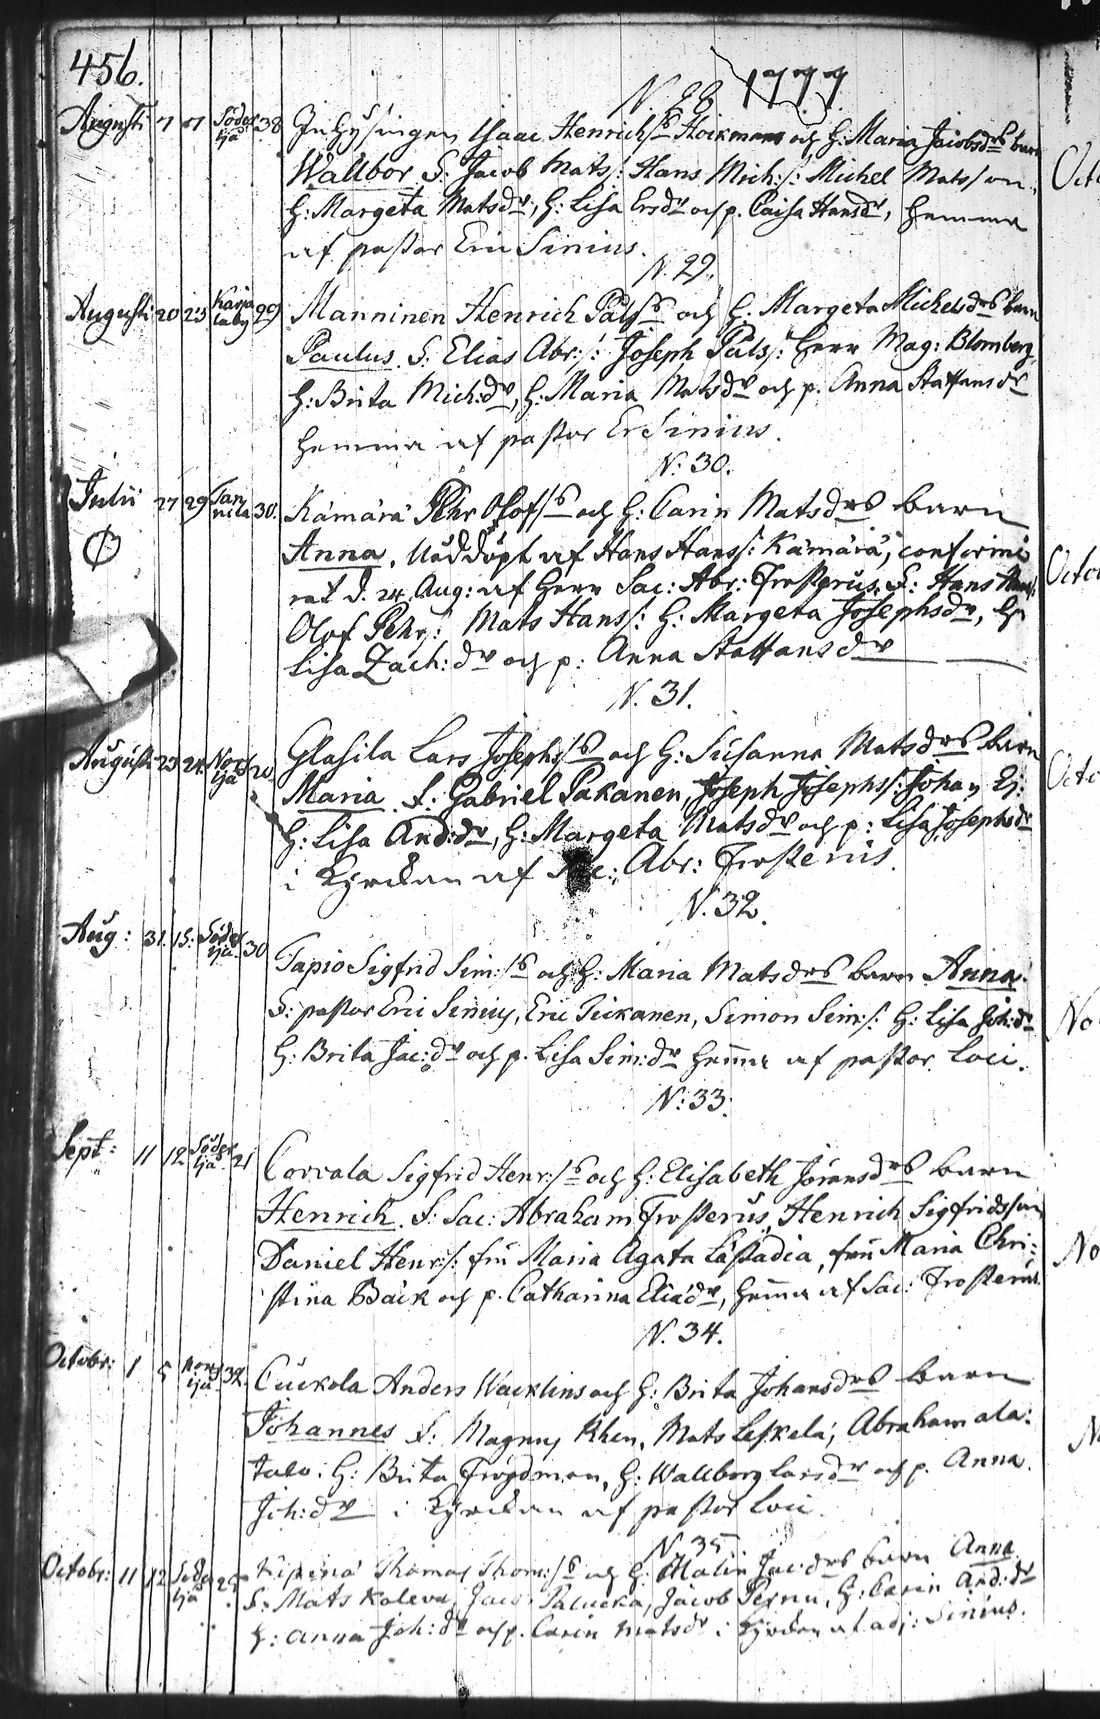 456.
N. 28. 1777
Augusti 7 07 Söder kjä 38 Inhysingen Isaac Henrichss Hoikman och H: Maria Jacobsdrs barn
Wallbor S: Jacob Mats/: Hans Mich:/: Michel Matsson,
H: Margeta Matsdr, H: Lisa Ersdr och p. Caisa Hansdr, hemma
af pastor Eric Sinius.
N. 29.
Augusti 20 23 Karja laby 29 Manninen Henrich Påls:s och H. Margeta Michelsdrs barn
Paulus. S: Elias Abr:/: Joseph Påls/: Herr Mag: Blomberg,
H: Brita Mich:dr, H: Maria Matsdr och p. Anna Staffansdr
hemma af pastor Er Sinius.
N: 30.
Julii 27 29 30. Kämärä Pehr Olofss och H: Carin Matsdrs barn
Anna. Nöddöpt af Hans Hans/: Kämärä, confirme
rat d. 24 Aug: af Herr Sac: Abr: Frosterus. S: Hans
Olof Pehr/: Mats Hans/: H: Margeta Josephsdr, H
Lisa Zach:dr och p: Anna Staffansdr
N. 31.
August: 23 24 Norr kjä 20 Glasila Lars Josephss och H: Susanna Matsdrs barn
Maria. S: Gabriel Pakanen, Joseph Josephs/: Johan Er:
H: Lisa And:dr, H: Margeta Matsdr och p: Lisa Josephsdr
i Kyrckan af Sac: Abr: Frosterus.
N. 32.
Aug: 31. 15: Söder kjä 30 Tapio Sigfrid Sim:ss och H: Maria Matsdrs barn Anna.
S: pastor Eric Sinius, Eric Pickanen, Simon Sim:/: H: Lisa Joh:dr
H: Brita Jac:dr och p. Lisa Sim:dr hemma af pastor loci.
N: 33.
Sept: 11 12 Söder kjä 21 Corvala Sigfrid Henr:ss och H: Elisabeth Jöransdrs barn
Henrich. S: Sac: Abraham Frosterus, Henrich Sigfridsson,
Daniel Henr:/: fru Maria Agata Lästadia, fru Maria Chri-
stina Bäck och p. Catharina Eliædr, hemma af Sac: Frosterus.
N. 34.
Octobr: 1 5 Norr kjä 32. Cuckola Anders Wacklins och H: Brita Johansdrs barn
Johannes S: Magnus Rhen, Mats Leskelä, Abraham ala-
talo. H: Brita Frogdman, H: Wallborg Larsdr och p. Anna
Joh:dr i Kyrckan af pastor loci.
N. 35
Octobr: 11 12 Söder kjä Thomas Thom:ss och H: Malin Jac:drs barn Anna
S: Mats Kaleva, Jac: Palucka, Jacob Pernu, H: Carin And:dr
H: Anna Joh:dr och p. Carin Matsdr i Kyrckan af adj: Sinius.